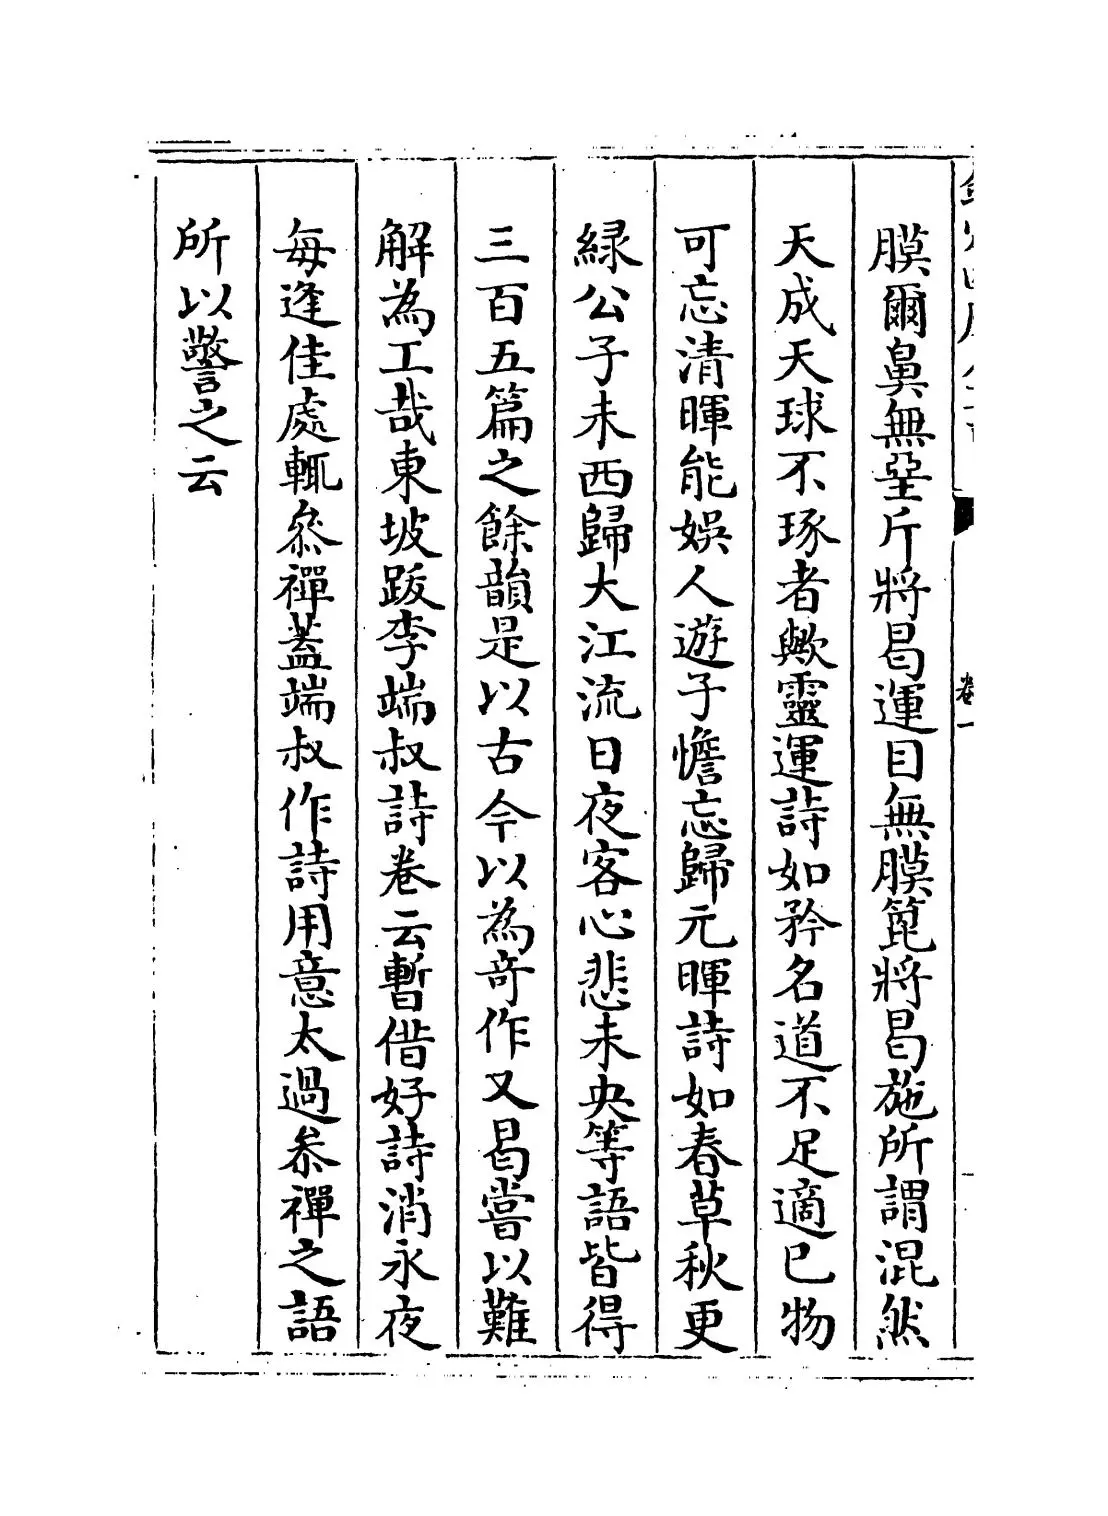 膜爾鼻無堊斤將曷運目無膜篦將曷施所謂混然
天成天球不琢者歟靈運詩如矜名道不足適己物
可忘清暉能娯人遊子憺忘歸元暉詩如春草秋更
緑公子未西歸大江流日夜客心悲未央等語皆得
三百五篇之餘韻是以古今以為奇作又曷嘗以難
解為工哉東坡跋李端叔詩卷云暫借好詩消永夜
每逢佳處輒叅禪蓋端叔作詩用意太過叅禪之語
所以警之云